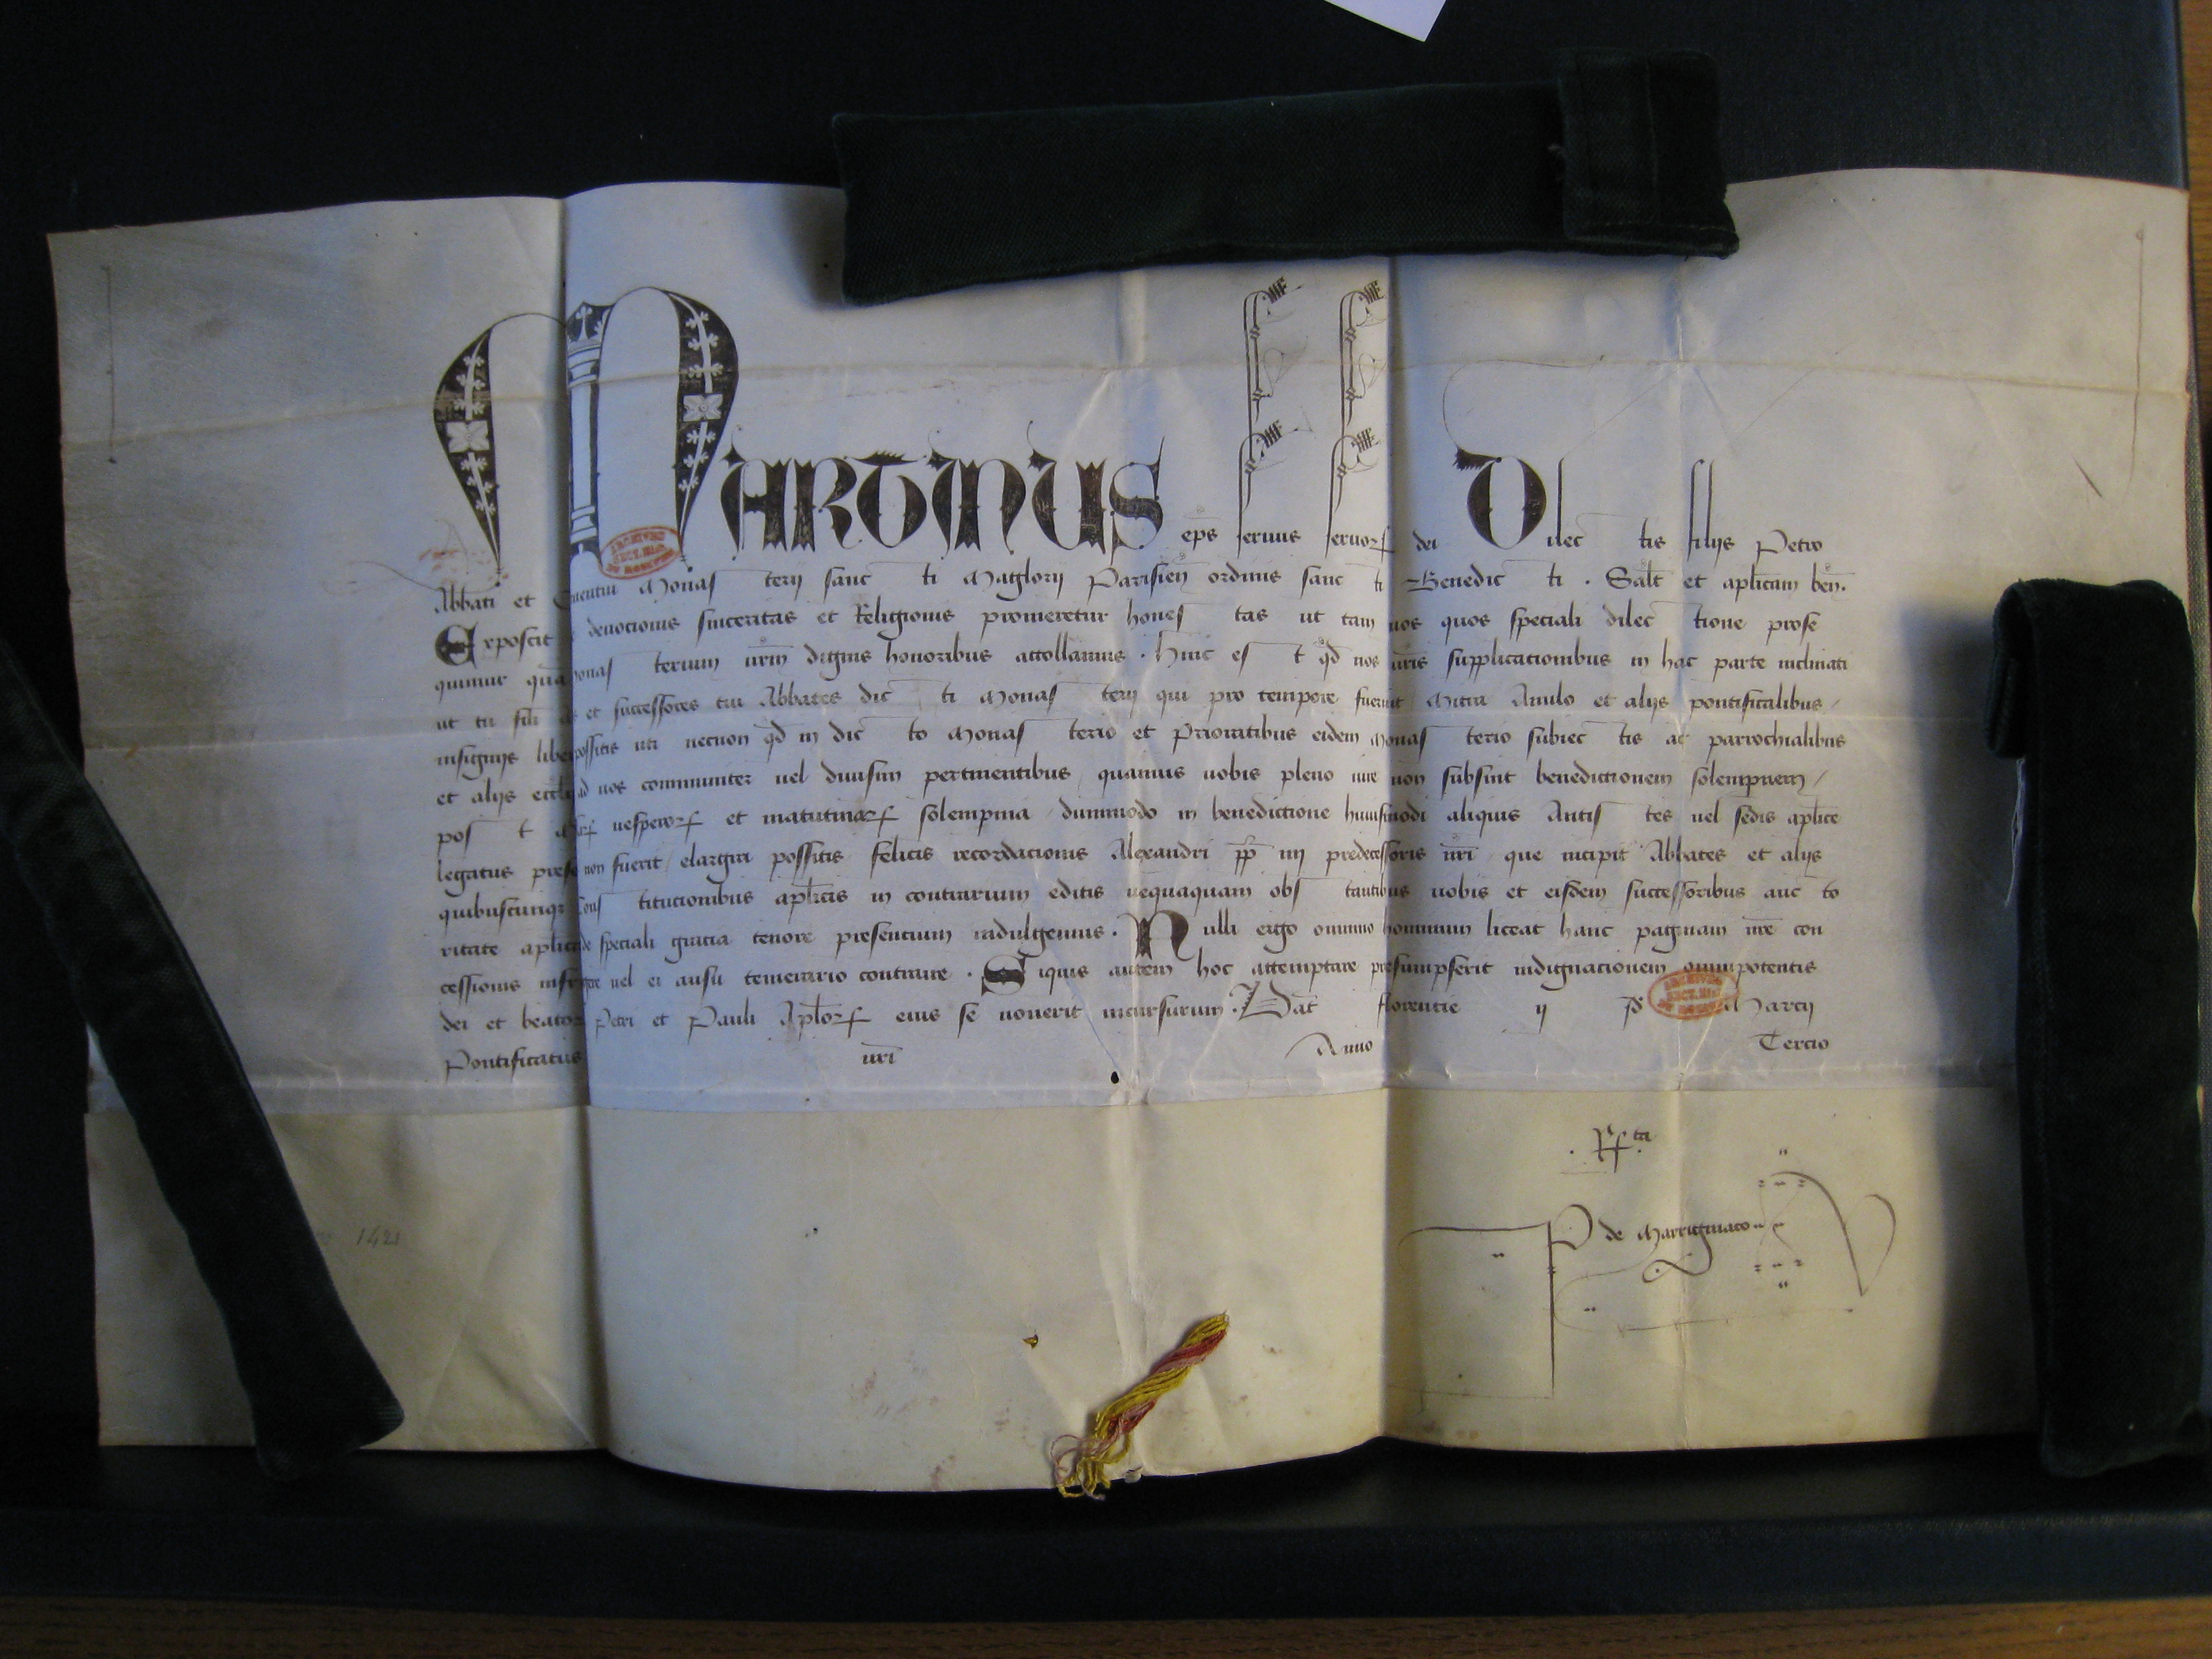 MARTINUS ep̄s seruus seruoꝝ dei Dilectis filijs Petro
Abbati et Conuentui Monasterij sancti Maglorij Parisien̄ ordinis sancti Benedicti . Salt̄ et aplicam ben̄.
Exposcit deuocionis sinceritas et Religionis promeretur honestas ut tam uos quos speciali dilectione prose
quimur quā monasterium ur̄m dignis honoribus attollamus . Hinc est qd̄ nos ur̄is supplicationibus in hac parte inclinati
ut tu fili et successores tui Abbates dicti Monasterij qui pro tempore fuerint Mitra Anulo et alijs pontificalibus /
insignijs libere possitis uti necnon qd̄ in dicto Monasterio et Prioratibus eidem Monasterio subiectis ac parrochialibus
et alijs eccl̄ijs ad uos communiter uel diuisim pertinentibus / quamuis uobis pleno iure non subsint benedictionem solempnem /
post uesperoꝝ et matutinaꝝ solempnia / dummodo in benedictione huiusmodi aliquis Antistes uel sedis aplice
legatus presens non fuerit / elargiri possitis / felicis recordacionis Alexandri pp̄ iiij predecessoris nr̄i / que incipit Abbates et alijs
quibuscunqꝫ constitucionibus aplicis in contrarium editis nequaquam obstantibus uobis et eisdem successoribus aucto
ritate aplica de speciali gracia tenore presencium indulgemus . Nulli ergo omnino hominum liceat hanc paginam nr̄e con
cessionis infringere uel ei ausu temerario contraire . Siquis autem hoc attemptare presumpserit indignacionem omnipotentis
dei et beatoꝝ Petri et Pauli Aplōꝝ eius se nouerit incursurum . Dat̄ florentie ij id̄ Marcij
Pontificatus nr̄i Anno Tercio
. Rta .
P de Martigniaco
1421
ARCHIVES
SECT. HIS.
DU ROYAUME
ARCHIVES
SECT. HIS.
DU ROYAUME